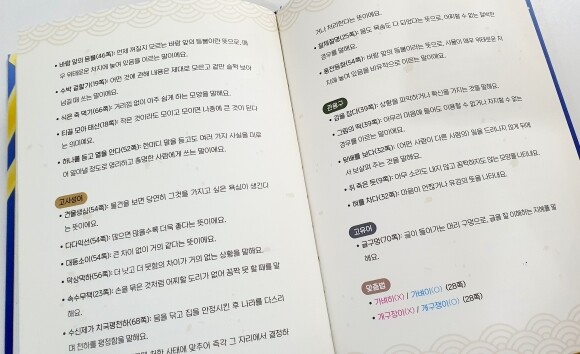 • 바람 앞의 등불(46쪽): 언제 꺼질지 모르는 바람 앞의 등불이란 뜻으로, 매
우 위태로운 처지에 놓여 있음을 이르는 말이에요.
• 수박 겉핥기(19쪽): 어떤 것에 관해 내용은 제대로 모르고 겉만 슬쩍 보아
넘길 때 쓰는 말이에요.
• 식은 죽 먹기(66쪽): 거리낌 없이 아주 쉽게 하는 모양을 말해요.
• 티끌 모아 태산(18쪽): 작은 것이라도 모이고 모이면 나중에 큰 것이 된다
는 의미예요.
• 하나를 듣고 열을 안다(52쪽): 한마디 말을 듣고도 여러 가지 사실을 미루
어 알아낼 정도로 영리하고 총명한 사람에게 쓰는 말이에요.
고사성어
• 견물생심(54쪽): 물건을 보면 당연히 그것을 가지고 싶은 욕심이 생긴다
는 뜻이에요.
• 다다익선(54쪽): 많으면 많을수록 더욱 좋다는 뜻이에요.
• 대동소이(54쪽): 큰 차이 없이 거의 같다는 뜻이에요.
• 막상막하(56쪽): 더 낫고 더 못함의 차이가 거의 없는 상황을 말해요.
• 속수무책(23쪽): 손을 묶은 것처럼 어찌할 도리가 없어 꼼짝 못 할 때를 말
해요.
• 수신제가 치국평천하(68쪽): 몸을 닦고 집을 안정시킨 후 나라를 다스리
며 천하를 평정함을 말해요.
사태에 맞추어 즉각 그 자리에서 결정하
거나 처리한다는 뜻이에요.
(25쪽): 몸도 목숨도 다 되었다는 뜻으로, 어찌할 수 없는 절박한
경우를 말해요.
• 풍전등화(54쪽): 바람 앞의 등불이라는 뜻으로, 사물이 매우 위태로운 처
지에 놓여 있음을 비유적으로 이르는 말이에요.
관용구
• 감을 잡다(39쪽): 상황을 파악하거나 확신을 가지는 것을 말해요.
• 그림의 떡(39쪽): 아무리 마음에 들어도 이용할 수 없거나 차지할 수 없는
경우를 이르는 말이에요.
• 뒤를 보다(32쪽): (어떤 사람이 다른 사람의) 일을 드러나지 않게 뒤에
서 보살펴 주는 것을 말해요.
• 쥐 죽은 듯(9쪽): 아무 소리도 내지 않고 꼼짝하지도 않는 모양을 나타내요.
• 혀를 차다(32쪽): 마음이 언짢거나 유감의 뜻을 나타내요.
고유어
• 글구멍(70쪽): 글이 들어가는 머리 구멍으로, 글을 잘 이해하는 지혜를 말
해요.
맞춤법
• 가벼히(X) / 가벼이(O) (28쪽)
• 개구장이(X) / 개구쟁이(O) (28쪽)